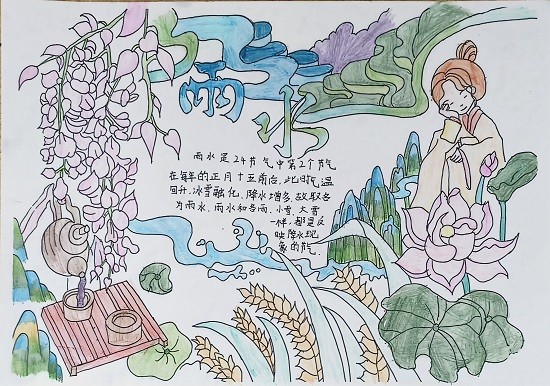 雨水
雨水是24节气中第2个节气
在每年的正月十五前后,此时气温
回升、冰雪融化、降水增多,故取名
为雨水。雨水和谷雨、小雪、大雪
一样,都是反
映降水现
象的节气.